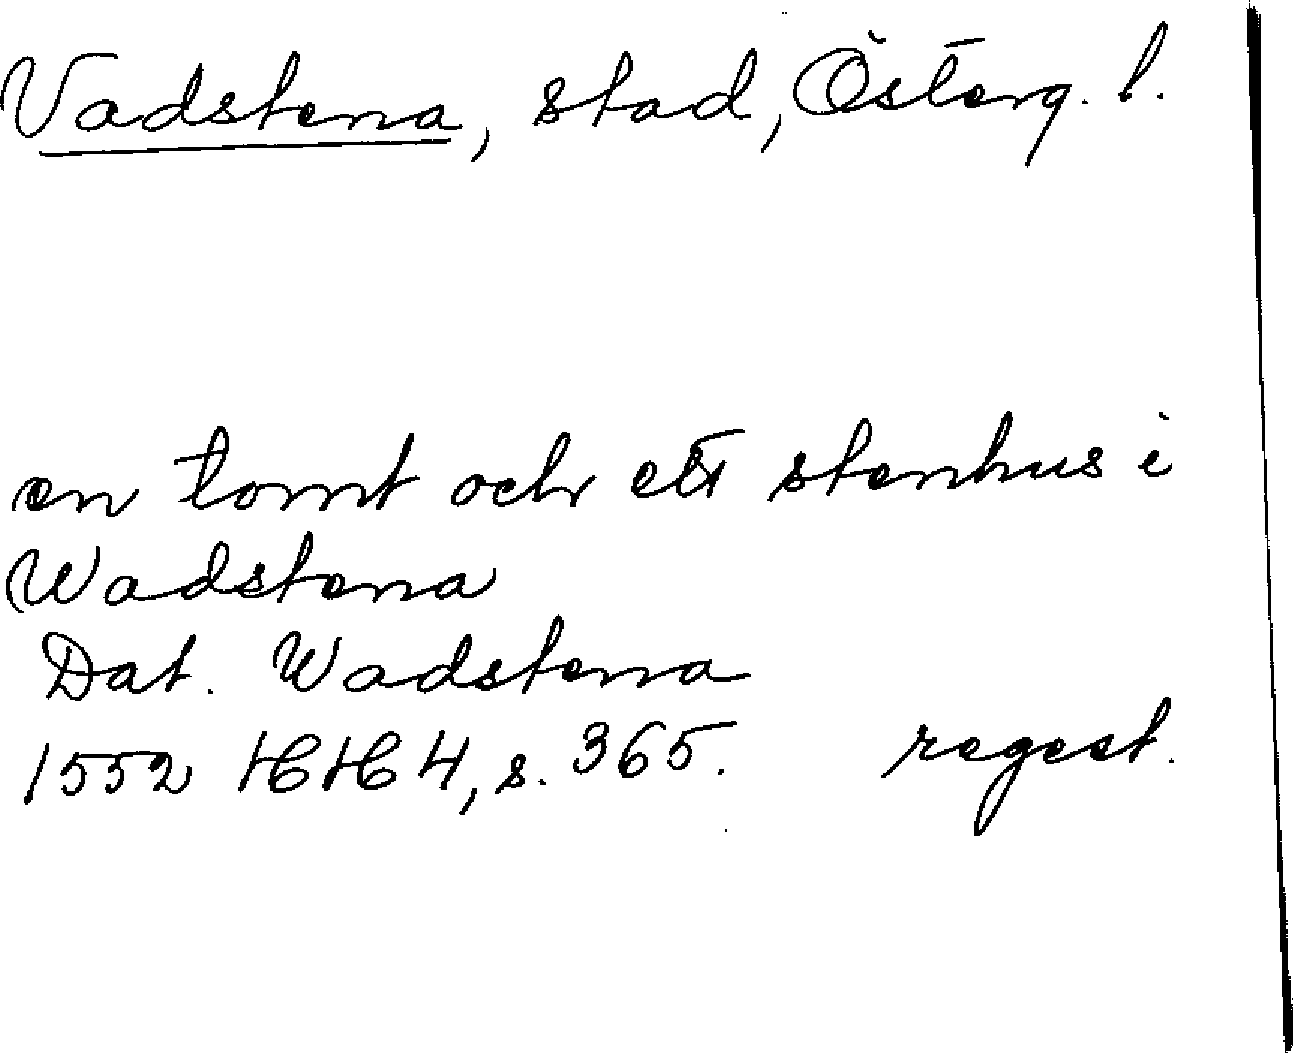 Vadstena, stad, Österg. l.
en tomt och ett stenhus i
Wadstena
Dat. Wadstena
1552 HH 4, s. 365. regest.